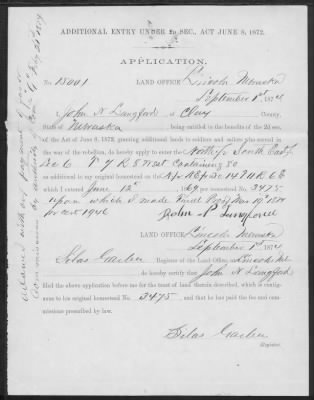 ADDITIONAL ENTRY UNDER 2D SEC., ACT JUNE 8, 1872.
APPLICATION.
No. 15001 LAND OFFICE Lincoln Nebraska
September 1st 1874
I, John N Langford of Clay County,
State of Nebraska being entitled to the benefits of the 2d sec.
of the Act of June 8, 1872, granting additional lands to soldiers and sailors who served in
the war of the rebellion, do hereby apply to enter the North ½ South East ¼
Sec 6 T 7 R 8 West Containing 80
as additional to my original homestead on the
which I entered June 12th 1869 per No. 3475
upon which I made Final Proof
per cert 1946
John N Langford
LAND OFFICE Lincoln Nebraska
September 1st 1874
I, Silas Garber Register of the Land Office, Lincoln Neb
do hereby certify that John N Langford
filed the above application before me for the tract of land therein described, which is contig-
uous to his original homestead No. 3475, and that he has paid the fee and com-
missions prescribed by law.
Silas Garber
Register.